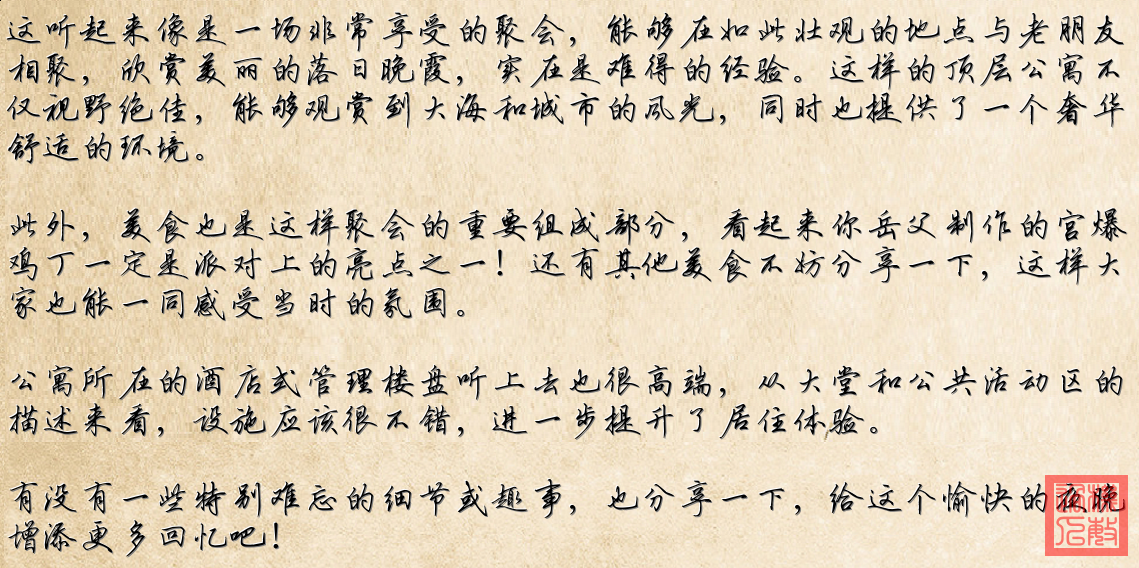 这听起来像是一场非常享受的聚会，能够在如此壮观的地点与老朋友
相聚，欣赏美丽的落日晚霞，实在是难得的经验。这样的顶层公寓不
仅视野绝佳，能够观赏到大海和城市的风光，同时也提供了一个奢华
舒适的环境。
此外，美食也是这样聚会的重要组成部分，看起来你岳父制作的宫爆
鸡丁一定是派对上的亮点之一！还有其他美食不妨分享一下，这样大
家也能一同感受当时的氛围。
公寓所在的酒店式管理楼盘听上去也很高端，从大堂和公共活动区的
描述来看，设施应该很不错，进一步提升了居住体验。
有没有一些特别难忘的细节或趣事，也分享一下，给这个愉快的夜晚
增添更多回忆吧！